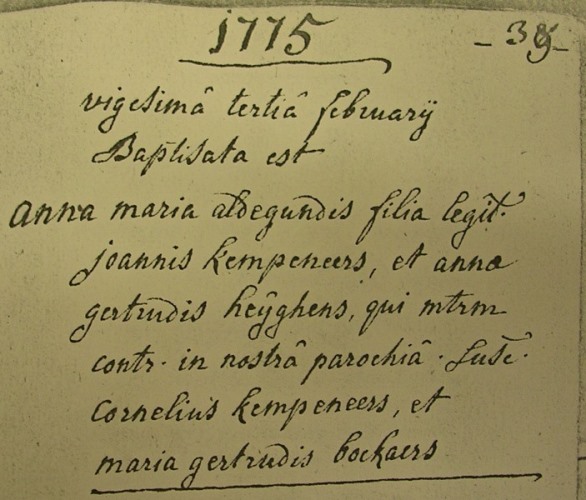 1775
vigesimâ tertiâ februarÿ
Baptisata est
anna maria aldegundis filia legit.
joannis kempeneers, et annæ
gertrudis heÿghens, qui mtrm
contr. in nostrâ parochiâ. Susc.
Cornelius kempeneers, et
maria gertrudis bockaers